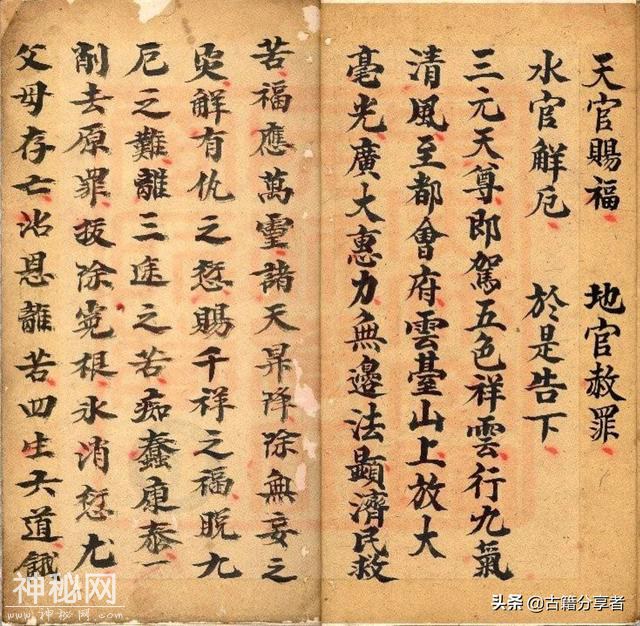 天官賜福 地官赦罪
水官解厄 於是告下
三元天尊即駕五色祥雲行九氣
清風至都會府雲臺山上放大
毫光廣大惠力無邊法顯濟民救
苦福應萬靈諸天昇降除無妄之
解有仇之愆賜千祥之福脫九
厄之難離三途之苦痴蠢康泰一
削去原罪拔除冤根氷消愆尤
父母存亡沾恩離苦四生六道餓
神秘网
www.神秘网.com
头条 @古籍分享者